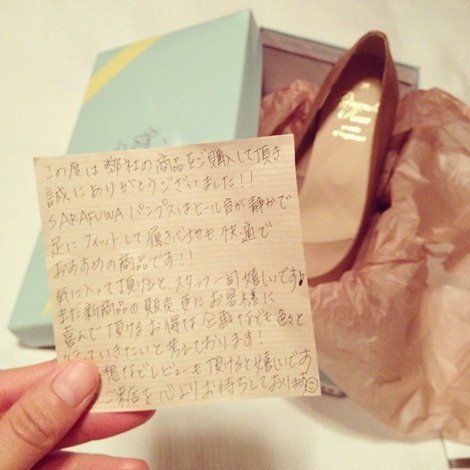 この度は弊社の商品をご購入して頂き
誠にありがとうございました!!
SARAFUWA パンプスはヒール音が静かで
足にフィットして履き心地も快適で
おすすめの商品です!!
気に入って頂けると、スタッフ一同嬉しいです♪
また新商品の販売、更にお客様に
喜んで頂けるお得な企画などを色々と
していきたいと考えております!
想などレビューも頂けると嬉しいです
ご来店を心よりお待ちしております